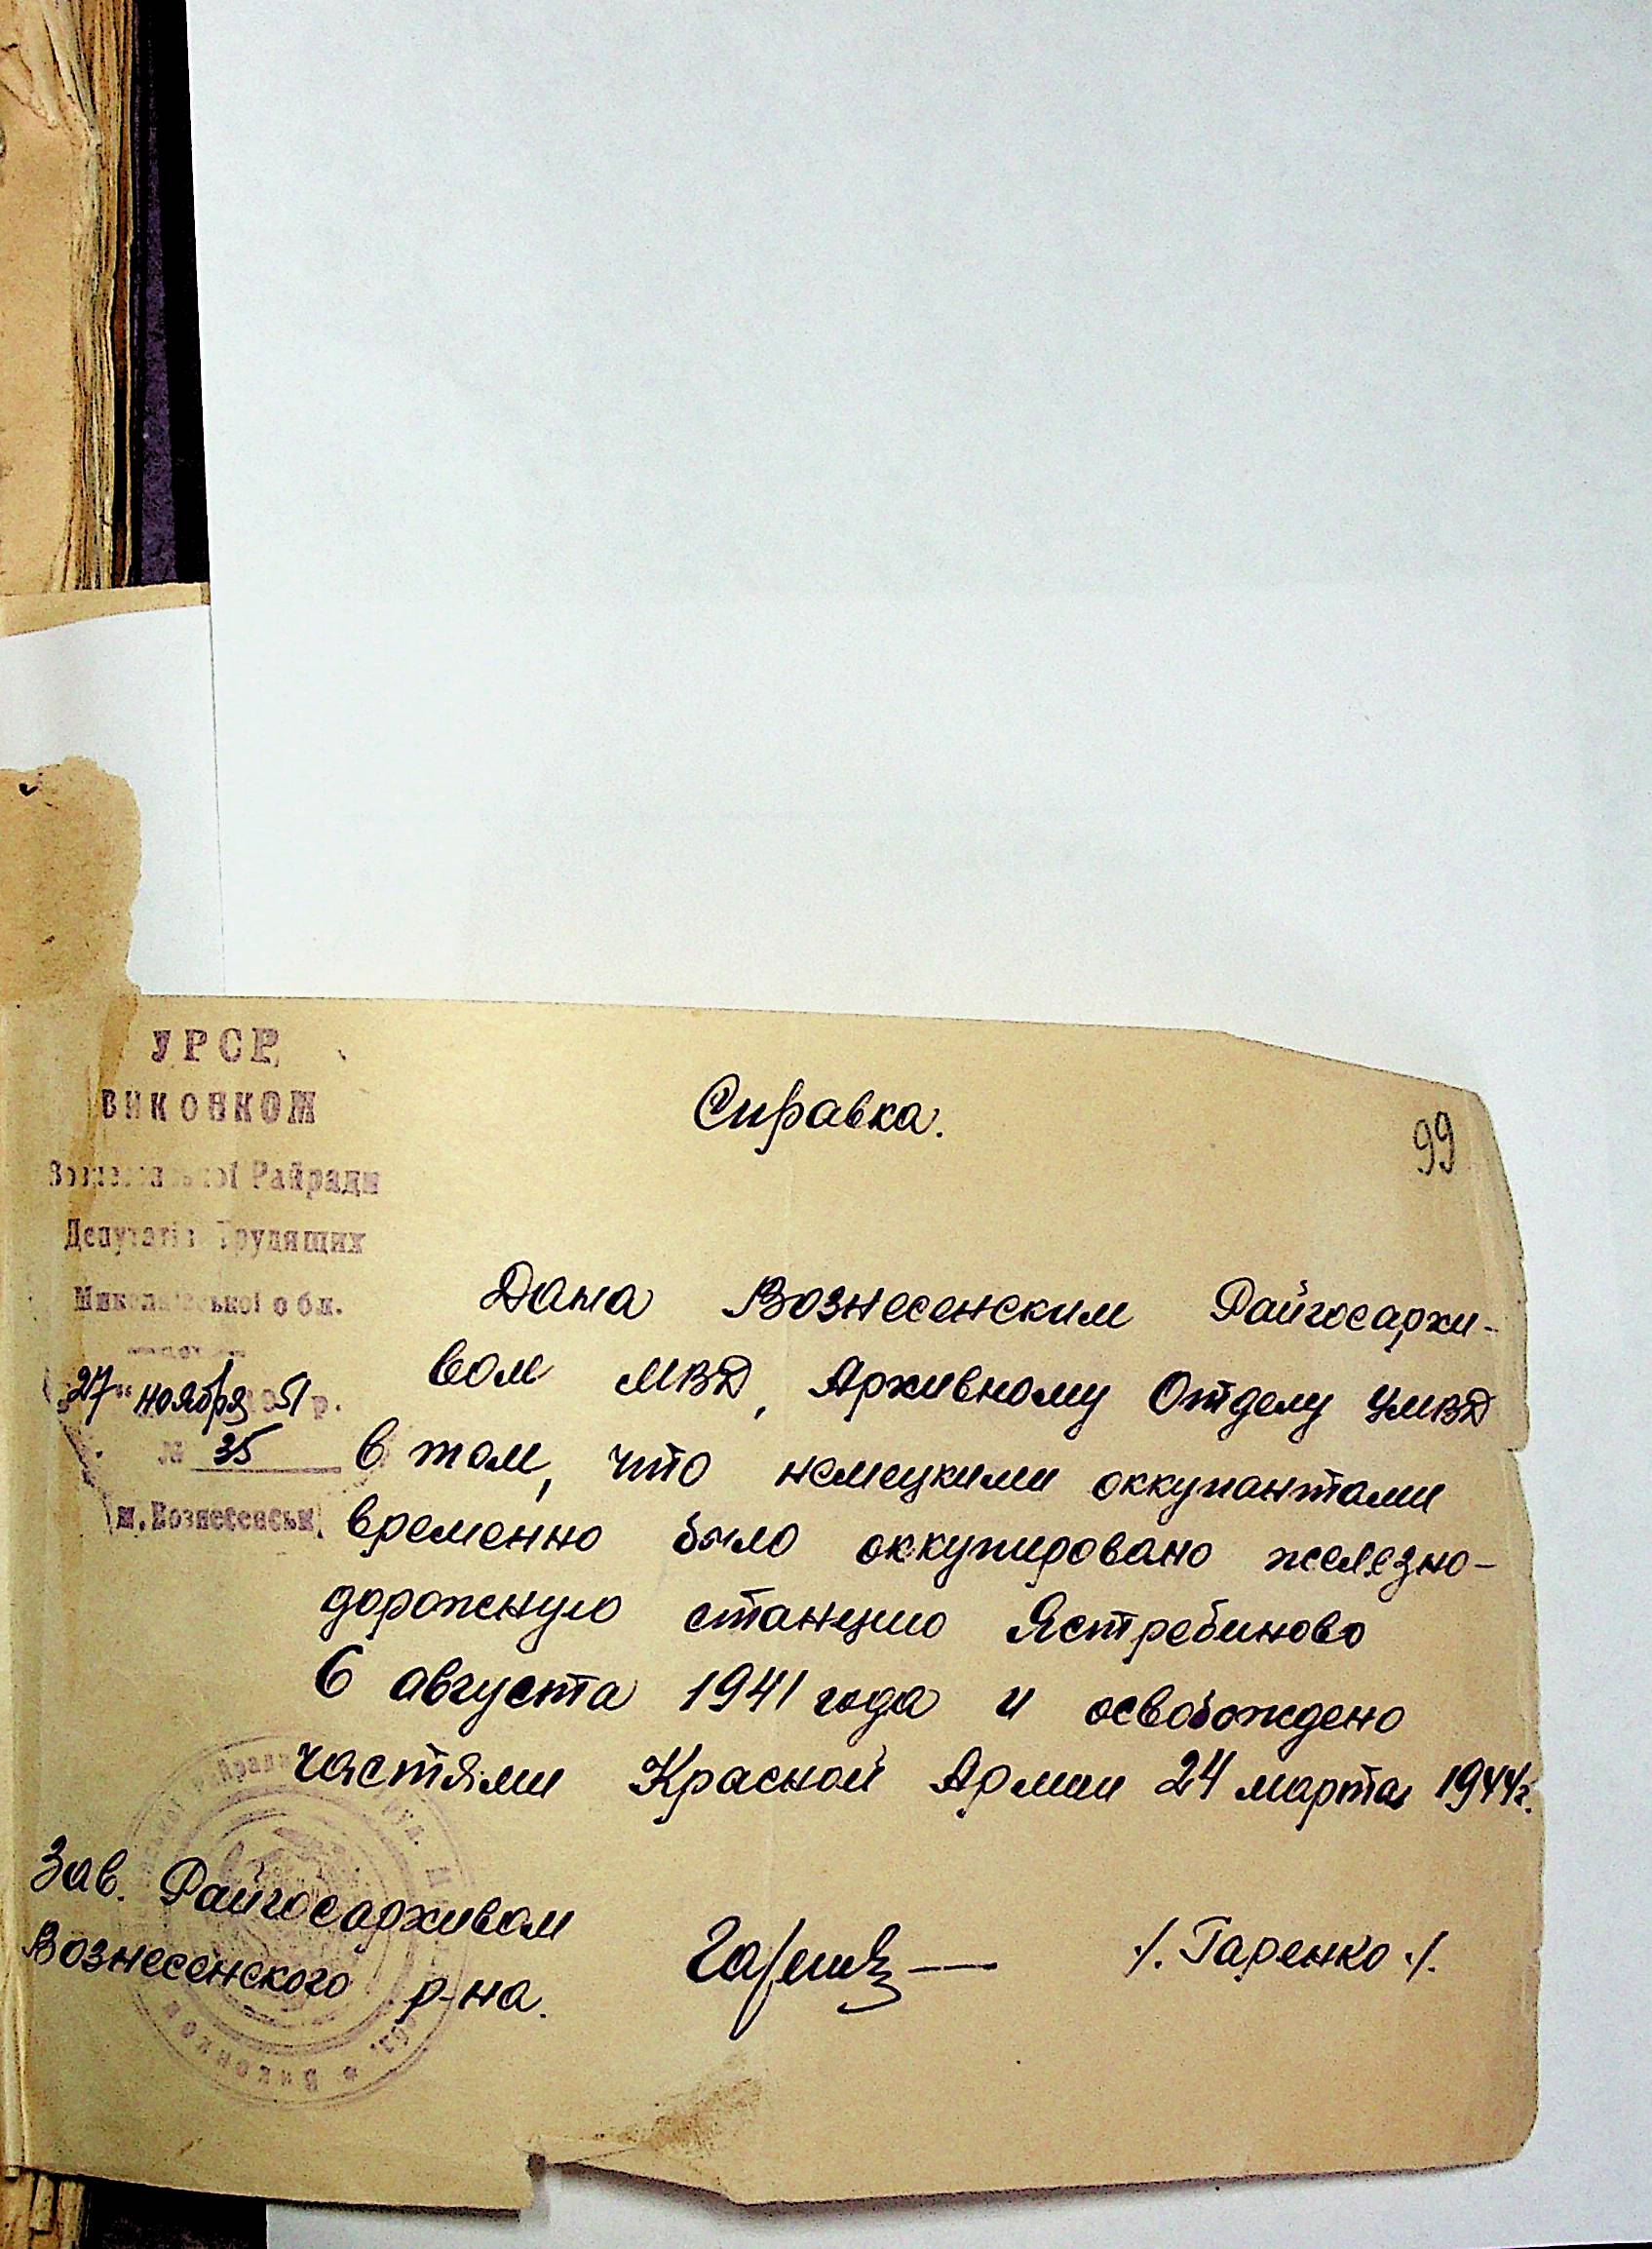 УРСР
ВИКОНКОМ
Вознесенської Райради
Депутатів Трудящих
Миколаївської обл.
27" ноября 51 р.
№ 35
м. Вознесенськ
Справка.
99
Дана Вознесенским Райгосархи-
вом МВД, Архивному Отделу УМВД
в том, что немецкими оккупантами
временно было оккупировано железно-
дорожную станцию Ястребиново
6 августа 1941 года и освобождено
частями Красной Армии 24 марта 1944г.
Зав. Райгосархивом
Вознесенского р-на.
/. Гаренко ./.
Виконком